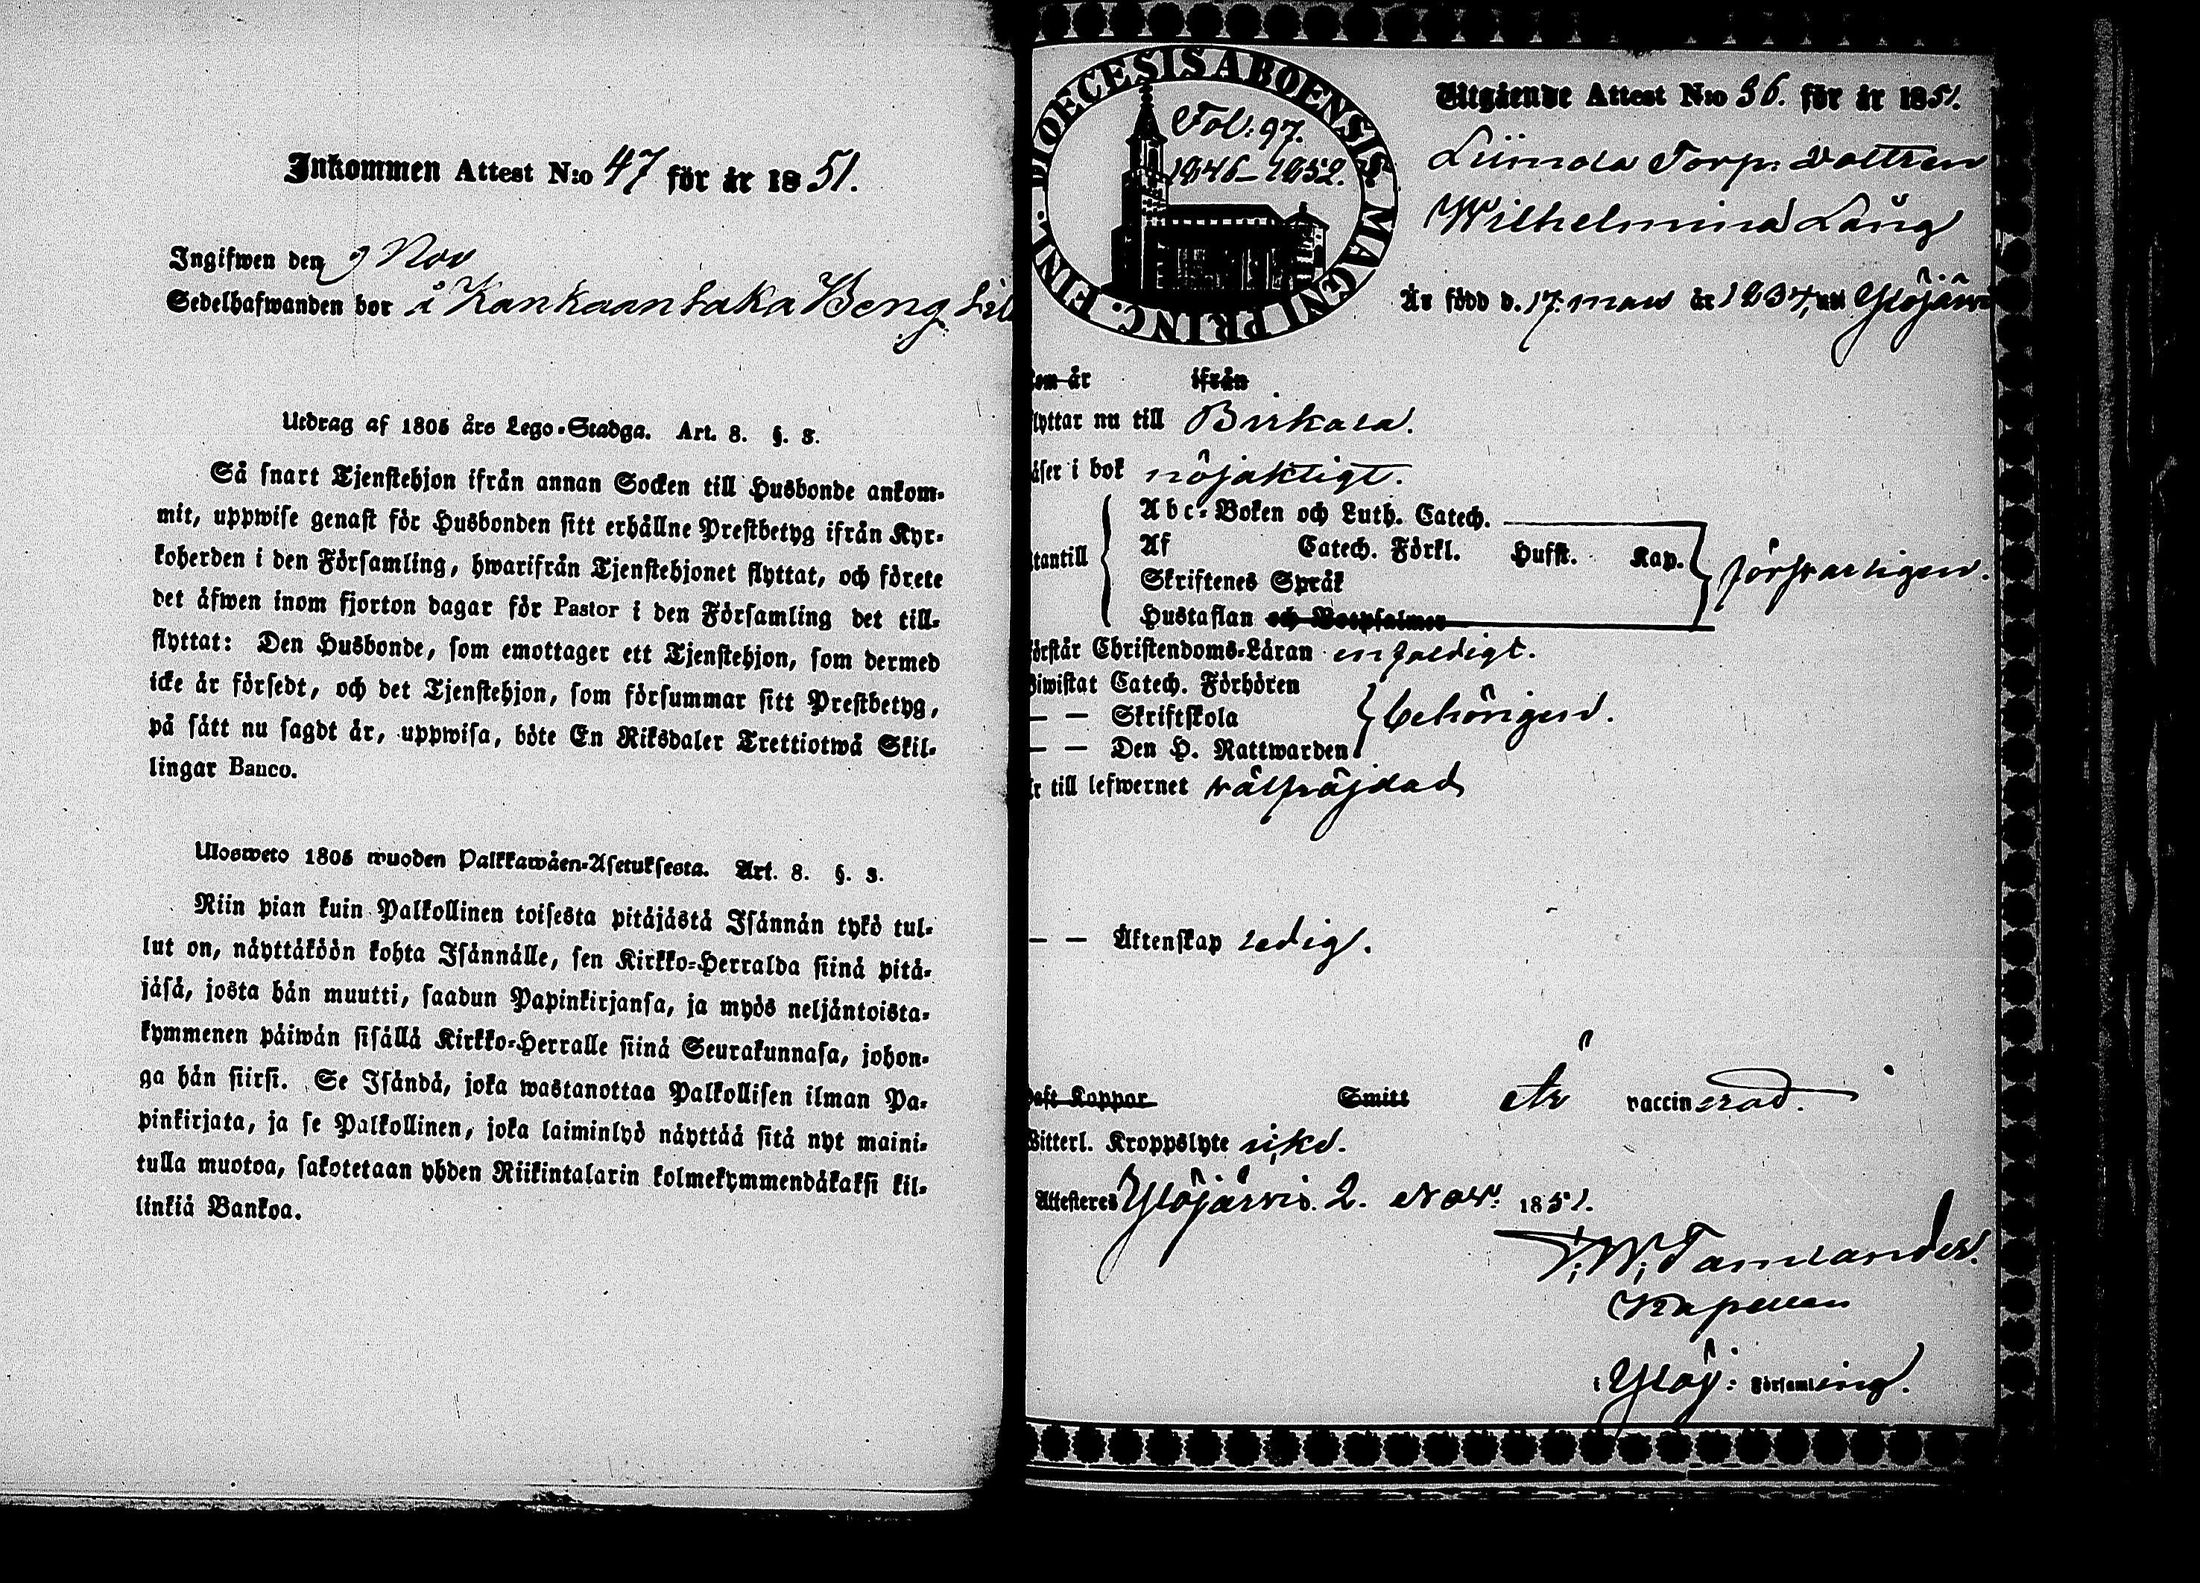 Inkommen Attest N:o 47 för år 1851.
Ingifwen den 9 Nov
Sedelhafwanden bor å Kankaantaka Beng till
Utdrag af 1805 års Lego-Stadga. Art. 8. §. 3.
Så snart Tjenstehjon ifrån annan Socken till Husbonde ankom-
mit, uppwise genast för Husbonden sitt erhållne Prestbetyg ifrån Kyr-
koherden i den Församling, hwarifrån Tjenstehjonet flyttat, och förete
det äfwen inom fjorton dagar för Pastor i den Församling det till-
flyttat: Den Husbonde, som emottager ett Tjenstehjon, som dermed
icke är försedt, och det Tjenstehjon, som försummar sitt Prestbetyg,
på sätt nu sagdt är, uppwisa, böte En Riksdaler Trettiotwå Skil-
lingar Banco.
Ulosweto 1805 wuoden Palkkawäen-Asetuksesta. Art. 8. §. 3.
Niin pian kuin Palkollinen toisesta pitäjästä Isännän tykö tul-
lut on, näyttäköön kohta Isännälle, sen Kirkko-Herralda siinä pitä-
jäsä, josta hän muutti, saadun Papinkirjansa, ja myös neljäntoista-
kymmenen päiwän sisällä Kirkko-Herralle siinä Seurakunnasa, johon-
ga hän siirsi. Se Isändä, joka wastanottaa Palkollisen ilman Pa-
pinkirjata, ja se Palkollinen, joka laiminlyö näyttää sitä nyt maini-
tulla muotoa, sakotetaan yhden Riikintalarin kolmekymmendäkaksi kil-
linkiä Bankoa.
DIOECESIS ABOENSIS. MAGNI PRINC. FINL.
Fol: 97.
1846-1852.
Utgående Attest N:o 36. för år 1851.
Liimola Torp: Dottren
Wilhelmina Lång
Är född d. 17 mars år 1834, uti Ylöjärvi
Kom år ifrån
flyttar nu till Birkala.
läser i bok nöjaktigt.
Utantill
Abc-Boken och Luth. Catech.
Af Catech. Förkl. Hufst. Kap.
Skriftenes Språk
Hustaflan och Botpsalmer
försvarligen.
Förstår Christendoms-Läran enfaldigt.
Biwistat Catech. Förhören
— — Skriftskola
— — Den H. Nattwarden
behörigen.
Är till lefwernet välfräjdad
— — Äktenskap ledig.
Haft Koppor Smitt Är vaccinerad.
Witterl. Kroppslyte icke.
Attesteres Ylöjärvi d. 2. Nov: 1851.
F: W: Tamlander.
Kapellan
i Ylöj: Församling.